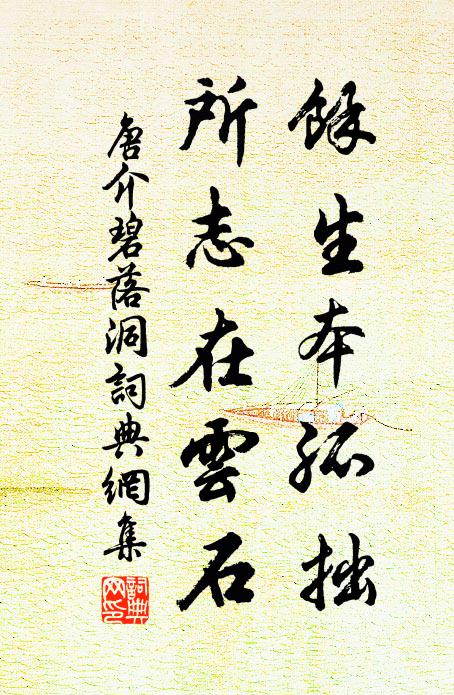 餘生本孤拙
所志在雲石
唐介碧落洞詞典網集
詞典网印